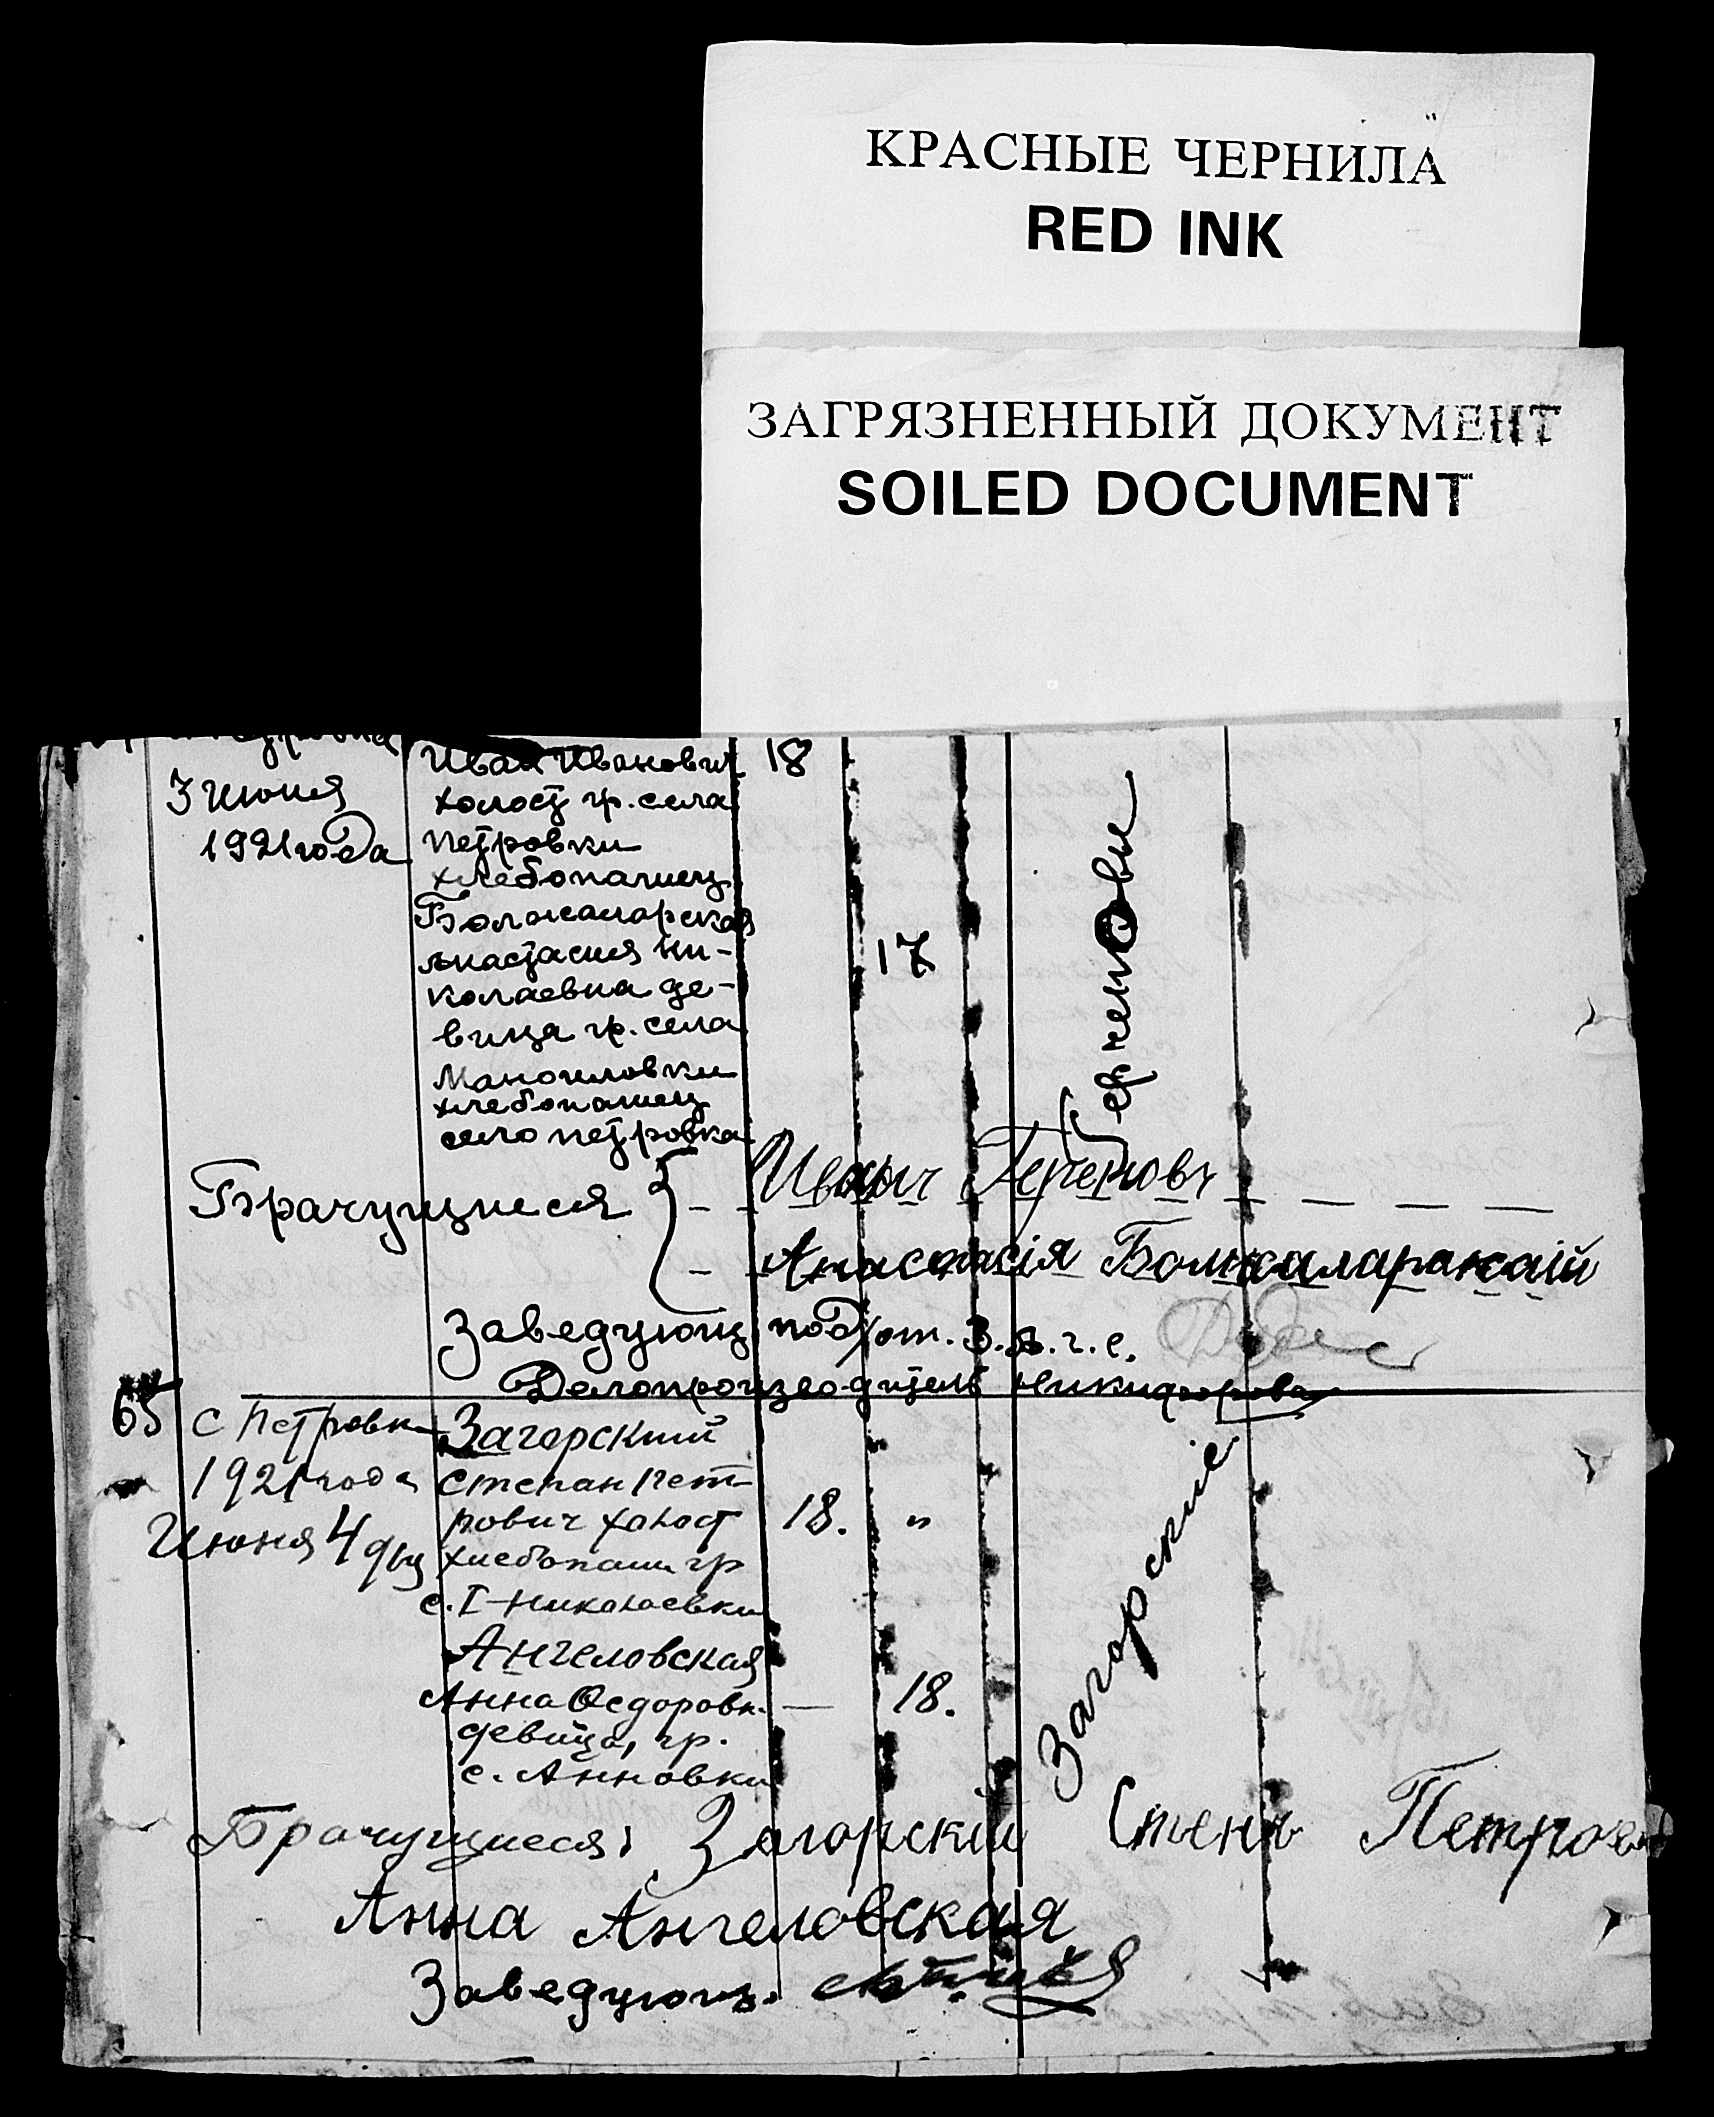 КРАСНЫЕ ЧЕРНИЛА
RED INK
ЗАГРЯЗНЕННЫЙ ДОКУМЕНТ
SOILED DOCUMENT
Иван Иванович 18
3 июня
1921 года
холост гр. села
Петровки
хлебопашец
Анастасия Ни-
колаевна де-
вица гр. села
Маноиловки
хлебопашец
село Петровка
17
Брачущиеся
Иван
Анастасія
Заведующ. под/от. З.А.Г.С.
Делопроизводитель Никифорова
65
с Петровка
1921 года
Июня 4 дня
Загорский
Степан Пет-
рович холост
хлебопаш гр
с. I-Николаевки
18. "
Ангеловская
Анна Федоровн.
девица, гр.
с. Анновки
— 18.
Загорские
Брачущиеся: Загорскій Степ Петров
Анна Ангеловская
Заведующ.